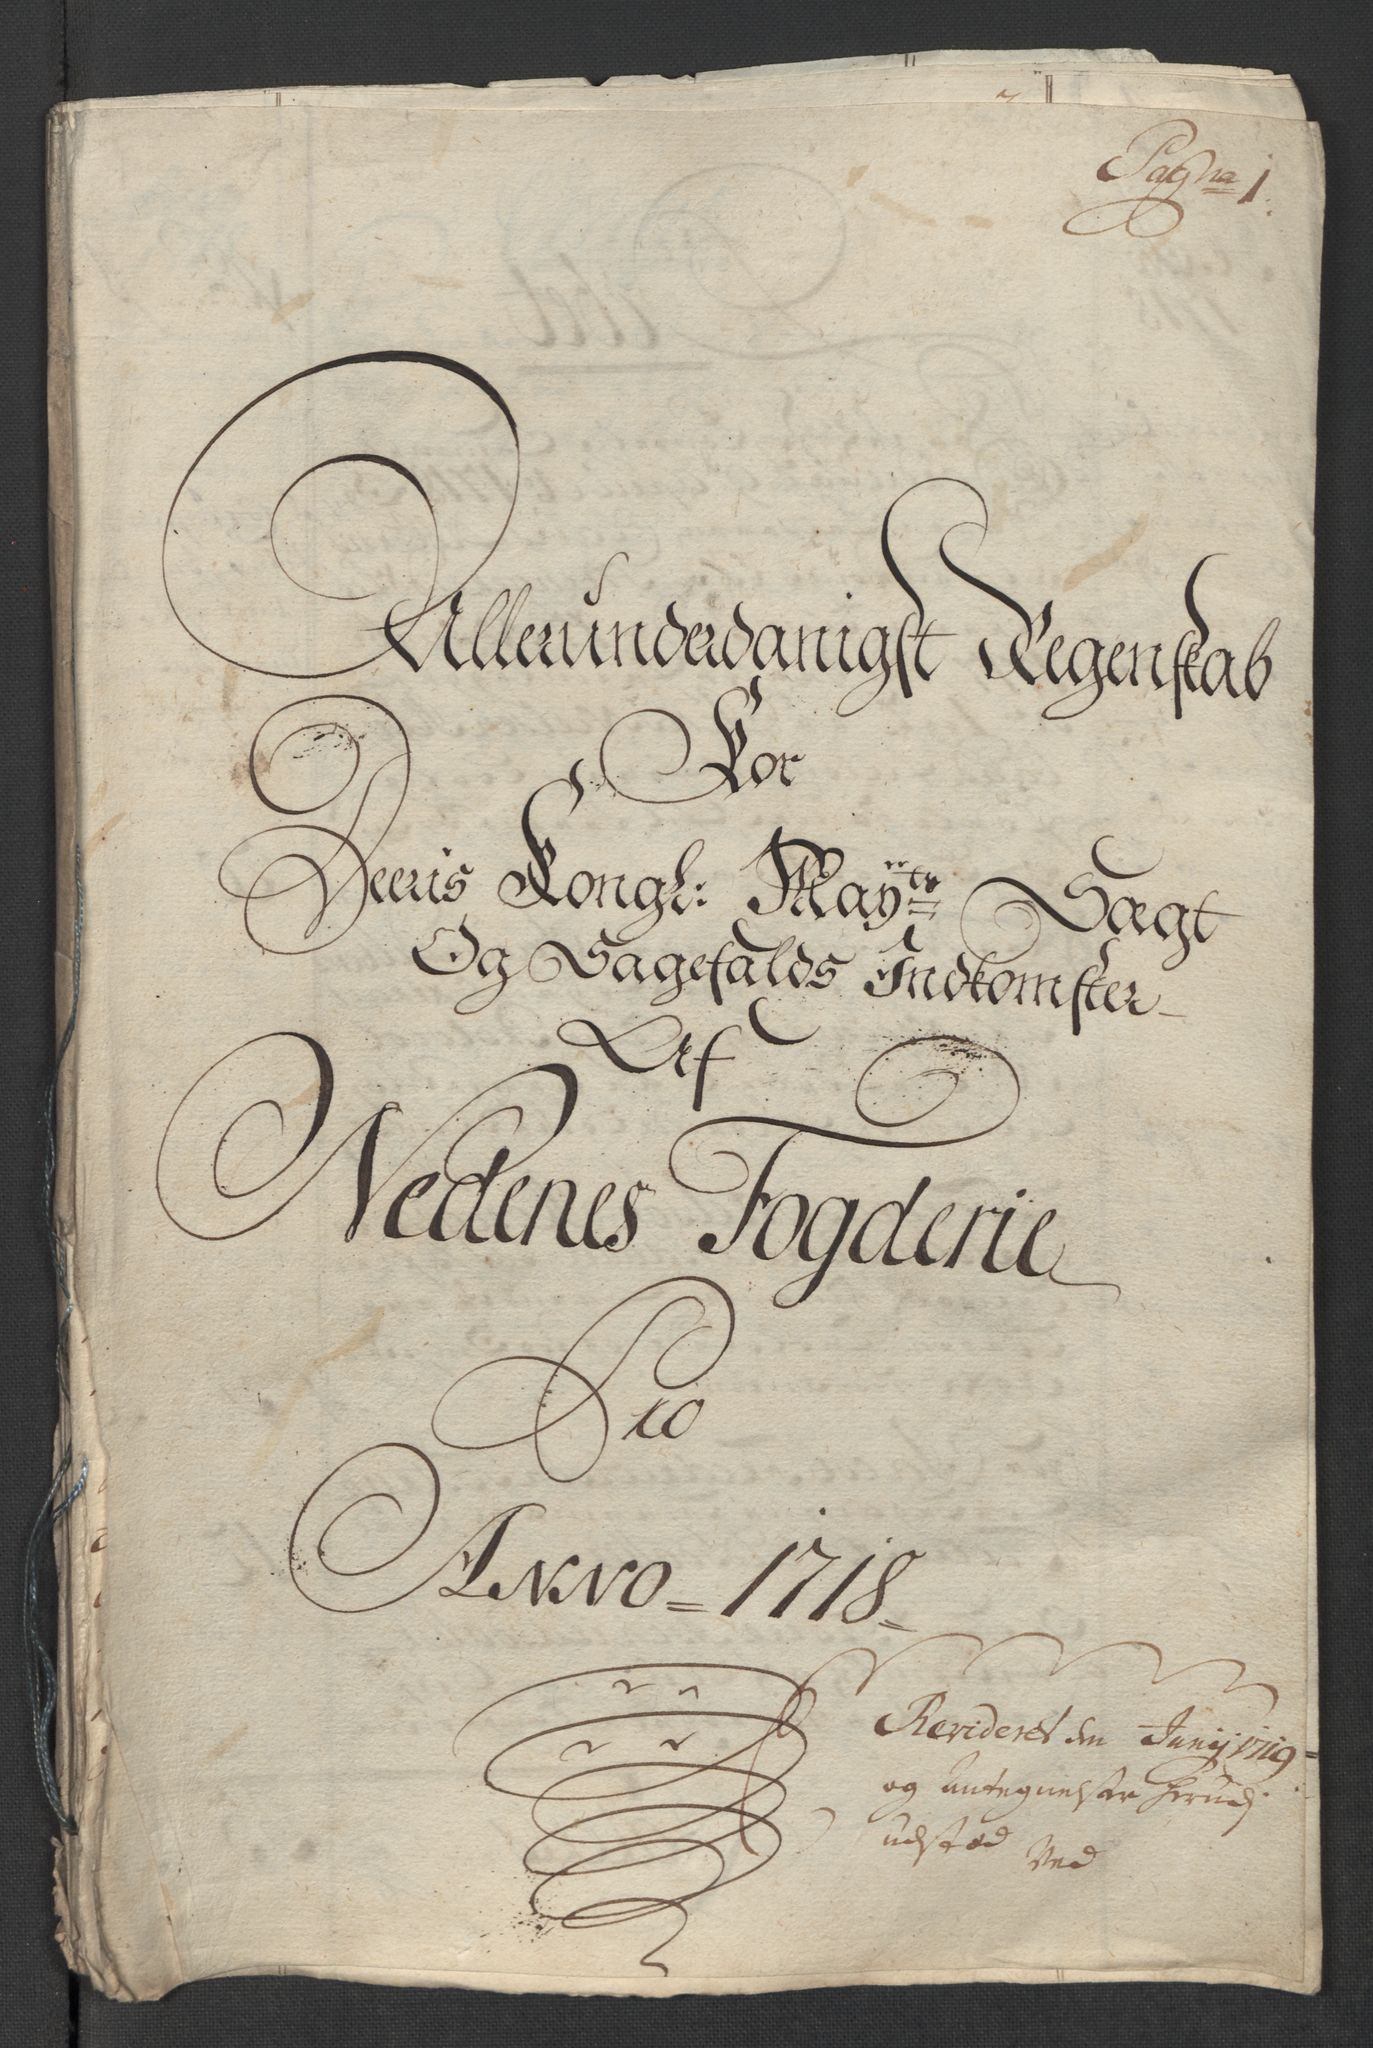 Pagina 1.
Allerunderdanigst Regenskab
For
Deris Kongl: Mayts Sagt
Og Sagefalds Indkomster
Af
Nedenes Fogderie
Pro
Anno 1718
Revideret den Junij 1719
og Antegnelser herud
udsted Ved